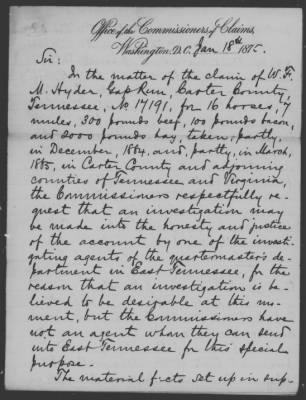 Office of the Commissioners of Claims,
Washington, D.C. Jan 18th 1875.
Sir:
In the matter of the claim of W. F.
M. Hyder, Gap Run, Carter County,
Tennessee, No 17191, for 16 horses, 7
mules, 300 pounds beef, 100 pounds bacon,
and 2000 pounds hay, taken, partly
in December, 1864, and, partly, in March,
1865, in Carter County and adjoining
counties of Tennessee and Virginia,
the Commissioners respectfully re-
quest that an investigation may
be made into the honesty and justice
of the account by one of the investi-
gating agents of the quartermaster's de-
partment in East Tennessee, for the
reason that an investigation is be-
lieved to be desirable at this mo-
ment, but the Commissioners have
not an agent whom they can send
into East Tennessee for this special
purpose.
The material facts set up in sup-